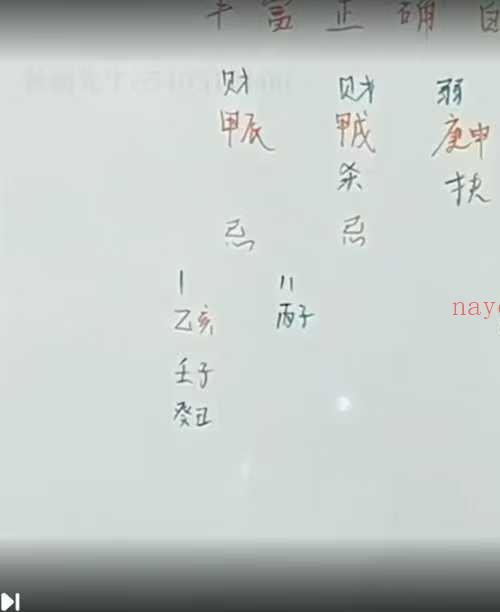 丰富正确自
财 财 弱
甲辰 甲戌 庚申
杀 扶
忌 忌
1 11
乙亥 丙子
naye
壬子
癸丑